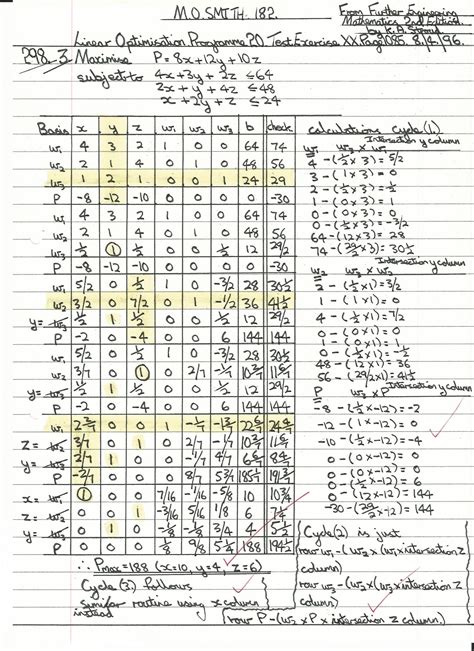 M.O.SMITH. 182.
From Further Engineering
Mathematics 2nd Edition
by K.A. Stroud
Linear Optimisation Programme 20 Test Exercise XX.Page1085. 8/4/96.
298. 3. Maximise P=8x+12y+10z
subject to 4x+3y+2z ≤64
2x+y+4z ≤48
x+2y+z ≤24
Basis x y z w₁ w₂ w₃ b check
w₁ 4 3 2 1 0 0 64 74
w₂ 2 1 4 0 1 0 48 56
w₃ 1 2 1 0 0 1 24 29
P -8 -12 -10 0 0 0 0 -30
w₁ 4 3 2 1 0 0 64 74
w₂ 2 1 4 0 1 0 48 56
w₃ ½ 1 ½ 0 0 ½ 12 29/2
P -8 -12 -10 0 0 0 0 -30
w₁ 5/2 0 ½ 1 0 -3/2 28 30½
w₂ 3/2 0 7/2 0 1 -½ 36 41½
y= w₃ ½ 1 ½ 0 0 ½ 12 29/2
P -2 0 -4 0 0 6 144 144
w₁ 5/2 0 ½ 1 0 -3/2 28 30½
w₂ 3/7 0 1 0 2/7 -1/7
y= w₃ ½ 1 ½ 0 0 ½ 12 29/2
P -2 0 -4 0 0 6 144 144
w₁ 0 0 1 -1/7
z= w₂ 3/7 0 1 0 2/7 -1/7
y= w₃ 2/7 1 0 0 -1/7 4/7
P -2/7 0 0 0 8/7
x= w₁ 1 0 0 7/16 -1/16 -5/8 10 10¾
z= w₂ 0 0 1 -3/16 5/16 1/8 6
y= w₃ 0 1 0 -1/8 -1/8 3/4 4 5½
P 0 0 0 1/8 9/8 5¼ 188 194½
∴ Pmax=188 (x=10, y=4, z=6)
Cycle (3) follows
similar routine using x column
instead
calculations cycle(1)
Intersection y column
w₁ w₃ x w₁
4 - (½ x 3) = 5/2
3 - (1 x 3) = 0
2 - (½ x 3) = ½
1 - (0 x 3) = 1
0 - (0 x 3) = 0
0 - (½ x 3) = -3/2
64 - (12 x 3) = 28
74 - (29/2 x 3) = 30½
Intersection y column
w₂ w₃ x w₂
2 - (½ x 1) = 3/2
1 - (1 x 1) = 0
4 - (½ x 1) = 7/2
0 - (0 x 1) = 0
1 - (0 x 1) = 1
0 - (½ x 1) = -½
48 - (12 x 1) = 36
56 - (29/2 x 1) = 41½
Intersection y column
P w₃ x P
-8 - (½ x -12) = -2
-12 - (1 x -12) = 0
-10 - (½ x -12) = -4
0 - (0 x -12) = 0
0 - (0 x -12) = 0
0 - (½ x -12) = 6
0 - (12 x -12) = 144
-30 - (29/2 x -12) = 144
Cycle(2) is just
row w₁ - (w₂ x (w₁ x intersection z
column)
row w₃ - (w₂ x (w₃ x intersection z
column)
row P - (w₂ x P x intersection z column)